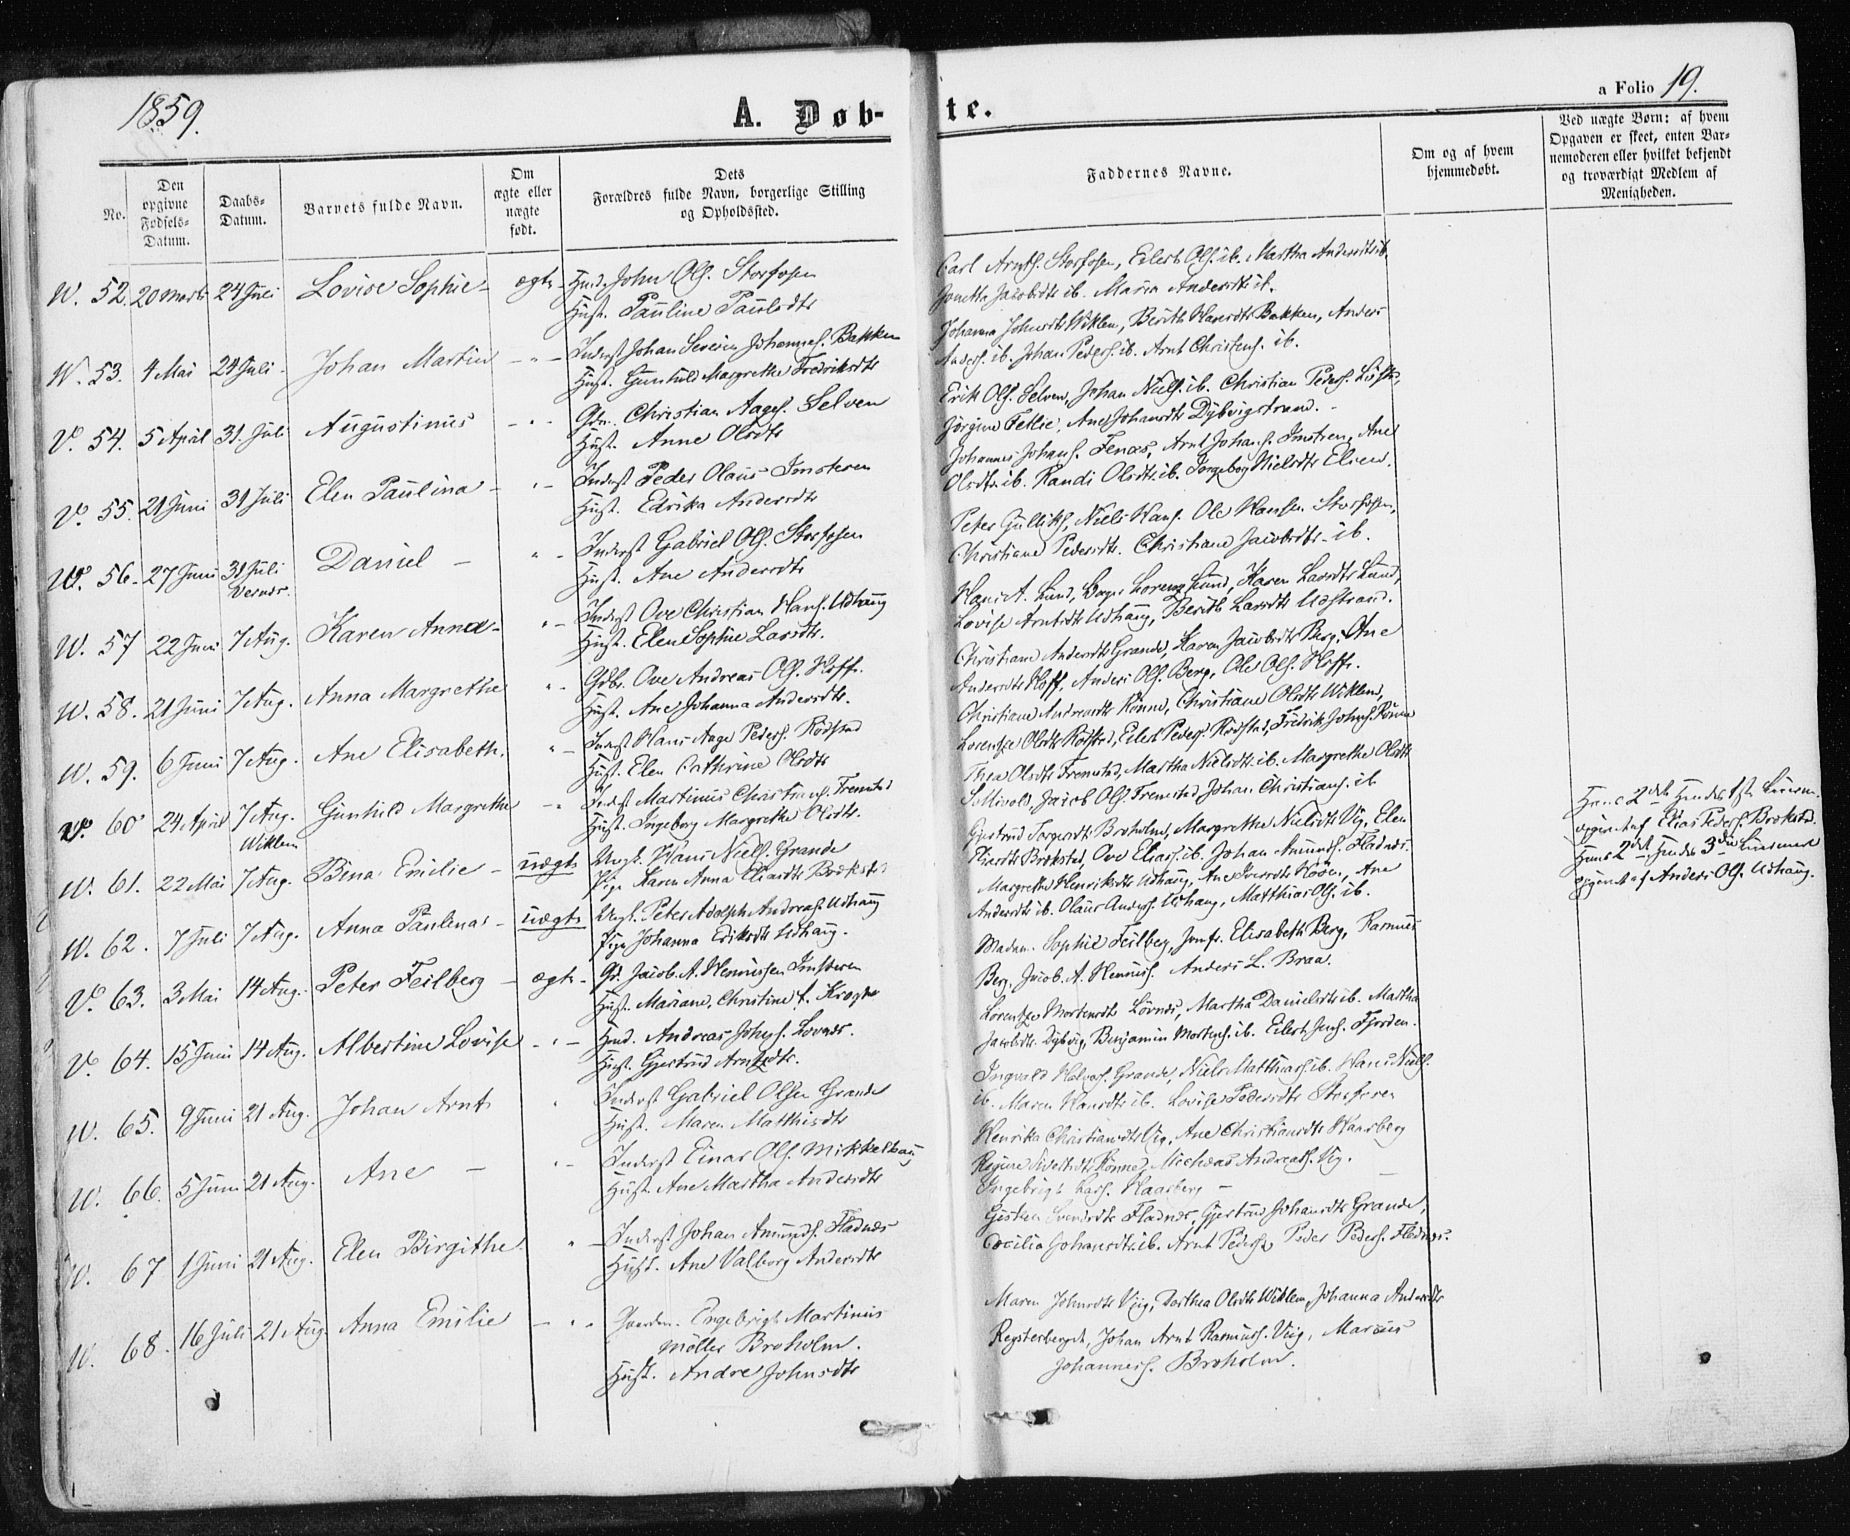 1859.
A. Døb-
te.
a Folio 19.
No.
Den opgivne Fødsels-Datum.
Daabs-Datum.
Barnets fulde Navn.
Om ægte eller uægte født.
Dets Forældres fulde Navn, borgerlige Stilling og Opholdssted.
Faddernes Navne.
Om og af hvem hjemmedøbt.
Ved uægte Børn: af hvem Opgaven er skeet, enten Barnemoderen eller hvilket bekjendt og troværdigt Medlem af Menigheden.
W. 52. 20 Marts 24 Juli Lovise Sophie - ægte - Husm. John Ols. Storfosen
Hust. Pauline Paulsdtr
Carl Arnts. Storfosen, Eilert Ols. ib. Martha Andersdtr ib.
Jonetta Jacobsdtr ib. Maria Andersdtr ib.
W. 53. 4 Mai 24 Juli - Johan Martin - " - Inderst Johan Severin Johannes. Bakken
Hust. Gunhild Margrethe Fredriksdtr
Johanna Johnsdtr Wiklem, Berith Bakken, Anders
Anders. ib. Johan Peders. ib. Arnt Christens. ib.
V. 54. 5 April 31. Juli Augustinus - " - Gdm. Christian Aages. Selven
Hust. Anne Olsdtr
Erik Ols. Selven, Johan Niels. ib. Christian Peders.
Jørgine Fetlie, Ane Johansdtr Dybvigstrand. -
V. 55. 21 Juni 31 Juli Elen Paulina - " - Inderst Peder Olaus Imsteren
Hust. Edrika Andersdtr
Johannes Johans. Fenæs, Arnt Johans. Imstren, Ane
Olsdtr. ib. Randi Olsdtr. ib. Ingeborg Nielsdtr
W. 56. 27 Juni 31 Juli Daniel - " - Inderst Gabriel Ols. Storfosen
Vernæs.
Hust. Ane Andersdtr
Peter Gulliks, Niels Hans. Ole Hansen Storfosen,
Christiane Pedersdtr. Christiane Jacobsdtr - ib.
W. 57 22 Juni 7 Aug. Karen Anna - " - Inderst Ove Christian Hans. Udhaug
Hust. Elen Sophie Larsdtr.
Hans A. Lund, Lorenz Lund, Karen Larsdtr Lund,
Lovise Arntsdtr Udhaug, Berith Larsdtr Udstrand.
W. 58. 21 Juni 7 Aug. Anna Margrethe " - Gdbr. Ove Andreas Ols. Hoff.
Hust. Ane Johanna Andersdtr.
Christiane Andersdtr Grande, Karen Jacobsdtr Berg, Ane
Andersdtr Hoff, Anders Ols. Berg, Ole Ols. Hoff.
W. 59. 6 Juni 7 Aug. Ane Elisabeth. " - Inderst Hans Aage Peders. Rødstad
Hust. Elen Cathrine Olsdtr
Christiane Andreasdtr Rønne, Christiane Olsdtr Wiklem,
Lorentze Olsdtr Rødstad, Eilert Peders. Rødstad, Fredrik Johns. Rønne
V. 60 24 April 7 Aug. Gunhild Margrethe - " Inderst Martinus Christians. Fremstad
Wiklem
Hust. Ingeborg Margrethe Olsdtr.
Thea Olsdtr Fremstad, Martha Nielsdtr ib. Margrethe Olsdtr
Jacob Ols. Fremstad, Johan Christians. ib
W. 61. 22 Mai 7 Aug. Bina Emilie - uægte Ungk. Hans Niels. Grande
Pige Karen Anna Eliasdtr Brøkstad
Gjertrud Broholm, Margrethe Nielsdtr Vig, Elen
Eliasdtr Brøkstad, Ove Elias. ib. Johan Amunds. Fladnæs.
Hans 2det Hendes 1ste Leierm.
opgivet af Elias Peders. Brøkstad.
W. 62. 7 Juli 7 Aug. Anna Paulena - uægte Ungk. Peter Adolph Andreas. Udhaug
Pige Johanna Eriksdtr Udhaug.
Margrethe Henriksdtr Udhaug, Ane Høøen, Ane
Andersdtr ib. Olaus Anders. Udhaug, Matthias Ols. ib.
Hans 2det, Hendes 3die Leiermaal
opgivet af Anders Ols. Udhaug.
V. 63. 3 Mai 14 Aug. - Peter Feilberg - ægte - Gr. Jacob A. Hennissen Imsteren
Hust. Mariane Christine f. Krogh
Madam. Sophie Feilberg, Jomfr. Elisabeth Berg, Rasmus
Berg, Jacob A. Henniss. Anders L. Braa.
V. 64. 15 Juni 14 Aug. Albertine Lovise - " - Husm. Andreas Johns. Lovnæs.
Hust. Gjertrud Arntsdtr.
Lorentze Mortensdtr Lövnæs, Martha Danielsdtr ib. Martha
Jacobsdtr. Dybvig, Benjamin Mortens. ib. Eilert Jens. Fjorden.
W. 65. 9 Juni 21 Aug. Johan Arnt " Inderst Gabriel Olsen Grande
Hust. Maren Matthisdtr
Ingvald Halvors. Grande, Niels Matthias. ib. Hans Niels.
ib. Maren Hansdtr ib. Lovise Pedersdtr Storfosen
W. 66. 5 Juni 21 Aug. Ane - " - Inderst Einar Ols. Mikkelhaug
Hust. Ane Martha Andersdtr
Henrika Christiansdtr Vig, Ane Christiansdtr Haarberg
Regine Rønne, Micheas Andreas. Vig. -
Ingebrigt Lars. Haarberg -
W. 67 1 Juni 21 Aug. Elen Birgithe. " - Inderst Johan Amunds. Fladnæs
Hust. Ane Valborg Andersdtr
Gjertrud Johansdtr Grande,
Cecilia Johansdtr ib. Arnt Peders Peder Peders. Fladnæs.
W. 68. 16 Juli 21 Aug. Anna Emilie - " . Gaardm. Engebrigt Martinus
Møller Broholm.
Hust. Andre Johnsdtr
Maren Johnsdtr Viig, Dorthea Olsdtr Wiklem, Johanna Andersdtr
Johan Arnt Rasmus. Viig, Marcus
Johannes. Broholm.